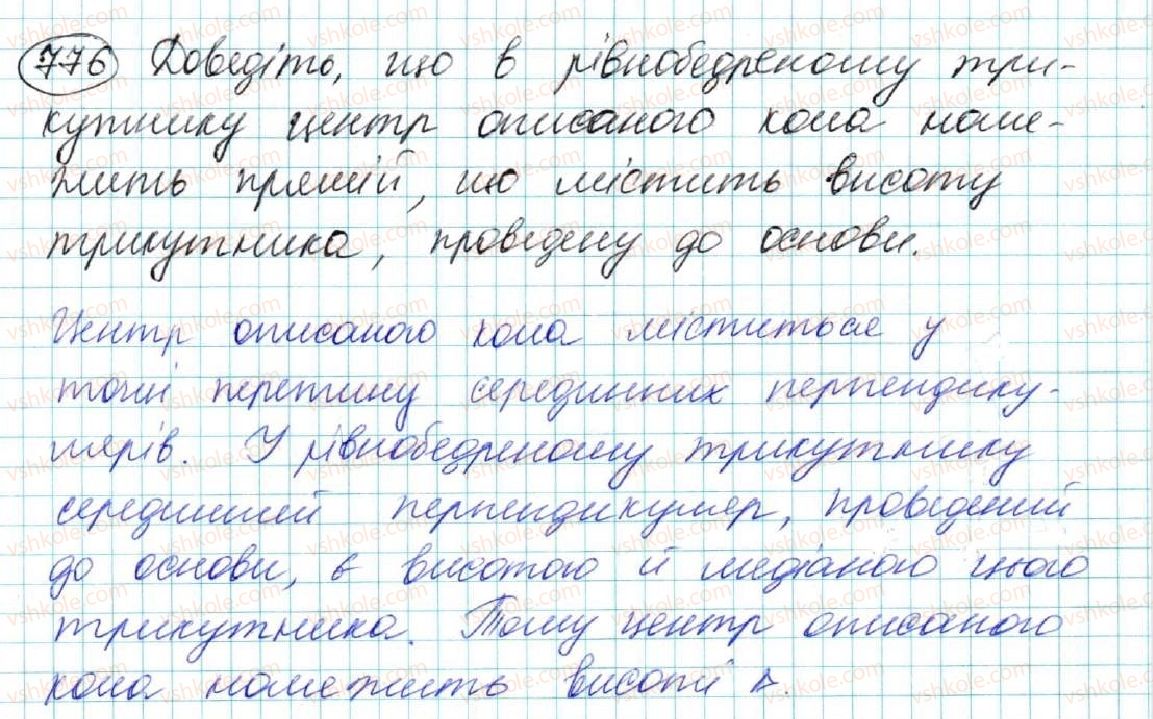 776 Доведіть, що в рівнобедреному три-
кутнику центр описаного кола нале-
жить прямій, що містить висоту
трикутника, проведену до основи.
Центр описаного кола міститься у
точці перетину серединних перпендику-
лярів. У рівнобедреному трикутнику
серединний перпендикуляр, проведений
до основи, є висотою й медіаною цього
трикутника. Тому центр описаного
кола належить висоті Δ.